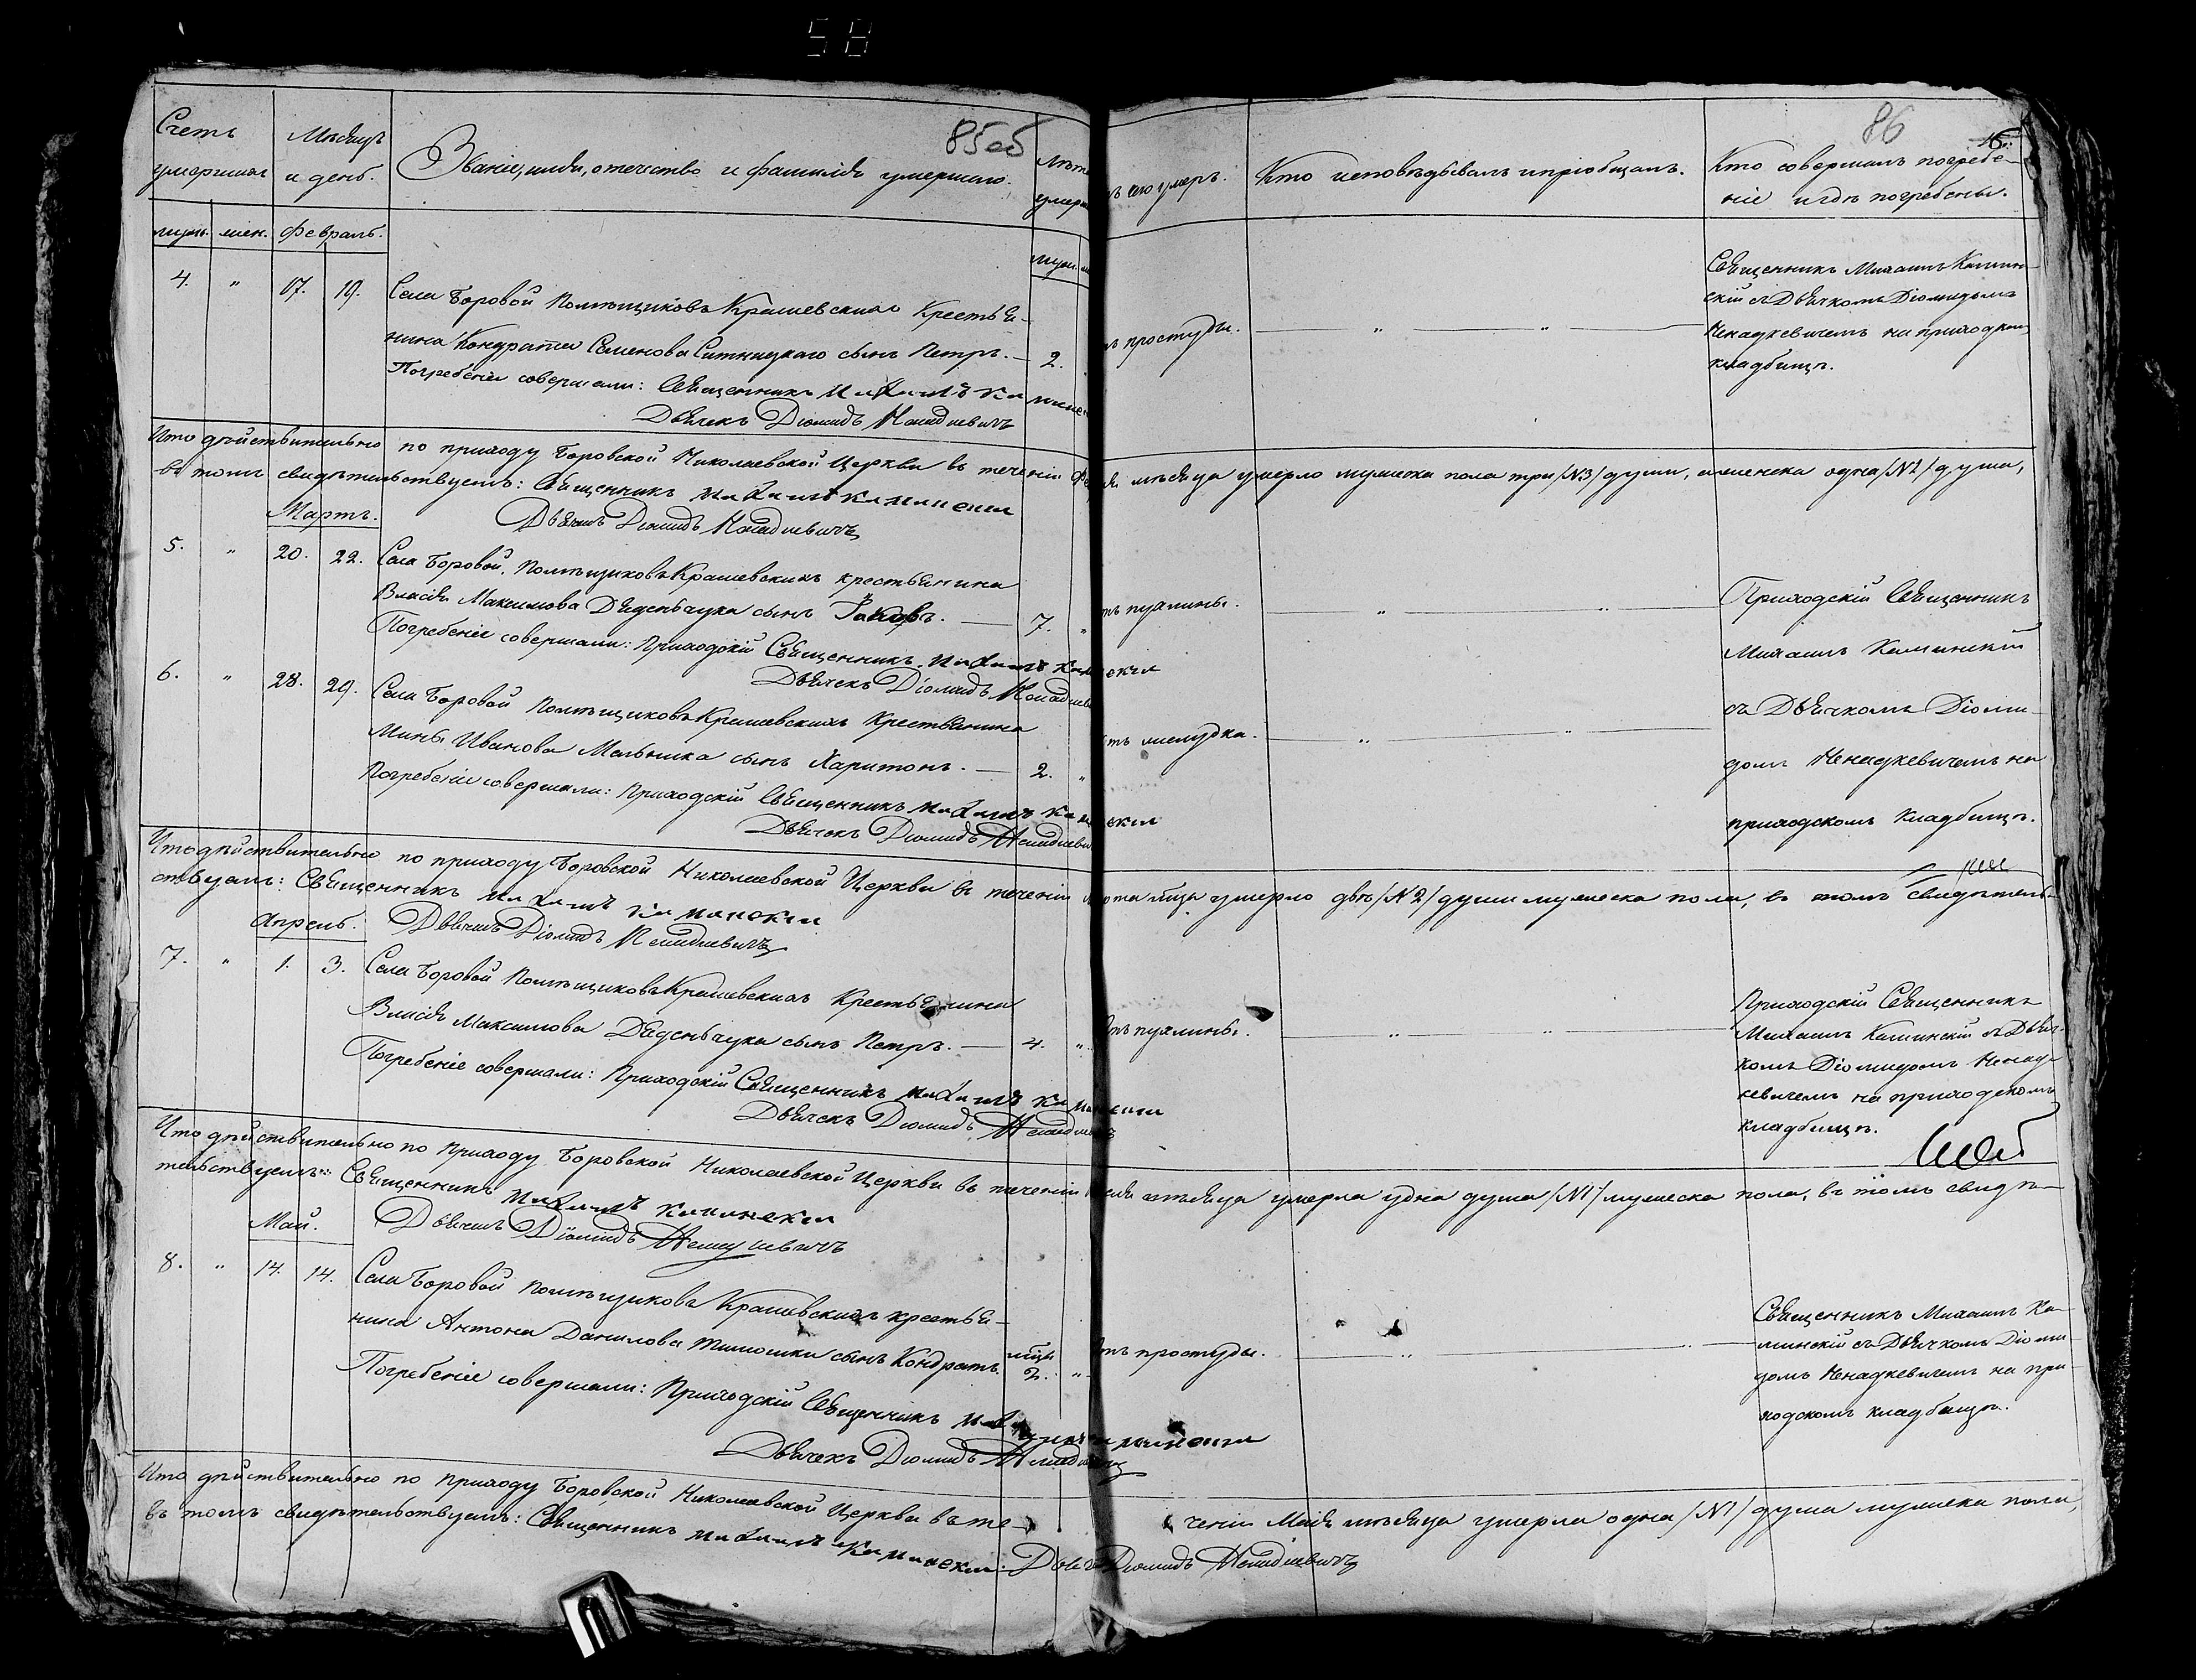 58
Счетъ умершихъ
Мѣсяцъ и день.
Званіе, имя, отечество и фамилія умершаго.
85об
Лѣта умерш
ъ чего умеръ.
Кто исповѣдывалъ и пріобщалъ.
Кто совершалъ погребе-
ніе и гдѣ погребены.
86
муж. жен. Февраль.
муж.
4. " 17. 19. Села Боровой Помѣщиковъ Крашевскихъ Крестья-
нина Кондрата Семенова Ситницкаго сынъ Петръ. — 2.
ъ простуды. — " — " —
Священникъ Михаилъ Камин-
скій съ Дьячкомъ Діомидомъ
Ненадкевичемъ на приходском
кладбищѣ.
Погребеніе совершали: Священникъ Михаилъ Камински
Дьячекъ Діомидъ Ненадкевичъ
Что дѣйствительно по приходу Боровской Николаевской Церкви въ теченіи Февраля мѣсяца умерло мужеска пола три /№3/ души, а женска одна /№1/ душа,
въ томъ свидѣтельствуемъ: Священникъ Михаилъ Каминскій
Дьячекъ Діомидъ Ненадкевичъ
Мартъ.
5. " 20. 22. Села Боровой, Помѣщиковъ Крашевскихъ крестьянина
Власія Максимова Дяденьчука сынъ Яковъ. — 7. "
тъ пухлины. — " — " —
Погребеніе совершали: Приходскій Священникъ Михаилъ Каминскій
Дьячекъ Діомидъ Ненадкеви
6. " 28. 29. Села Боровой Помѣщиковъ Крашевскихъ Крестьянина
Мины Иванова Мельника сынъ Харитонъ. — 2. "
тъ желудка. — " — " —
Погребеніе совершали: Приходскій Священникъ Михаилъ Каминскій
Дьячекъ Діомидъ Ненадкеви
Приходскій Священникъ
Михаилъ Каминскій
съ Дьячкомъ Діоми-
домъ Ненадкевичемъ на
приходскомъ Кладбищѣ.
Что дѣйствительно по приходу Боровской Николаевской Церкви въ теченіи Марта мца умерло двѣ /№2/ души мужеска пола, въ томъ свидѣтель-
ствуемъ: Священникъ Михаилъ Каминскій
Дьячекъ Діомидъ Ненадкевичъ
Апрель.
7. " 1. 3. Села Боровой Помѣщиковъ Крашевскихъ Крестьянина
Власія Максимова Дяденьчука сынъ Петръ. — 4. "
Отъ пухлины. — " — " —
Погребеніе совершали: Приходскій Священникъ Михаилъ Каминскій
Дьячекъ Діомидъ Ненадкевичъ
Приходскій Священникъ
Михаилъ Каминскій съ Дьяч-
комъ Діомидомъ Ненад-
кевичемъ на приходскомъ
кладбищѣ.
Что дѣйствительно по приходу Боровской Николаевской Церкви въ теченіи Апреля мѣсяца умерла одна душа /№1/ мужеска пола, въ томъ свидѣ-
тельствуемъ: Священникъ Михаилъ Каминскій
Дьячекъ Діомидъ Ненадкевичъ
Май.
8. " 14. 14. Села Боровой Помѣщиковъ Крашевскихъ крестья-
нина Антона Данилова Тимошки сынъ Кондратъ. мцы 2. "
Отъ простуды. — " — " —
Погребеніе совершали: Приходскій Священникъ Михаилъ Каминскій
Дьячекъ Діомидъ Ненадкевичъ
Священникъ Михаилъ Ка-
минскій съ Дьячкомъ Діоми-
домъ Ненадкевичемъ на при-
ходскомъ кладбищѣ.
Что дѣйствительно по приходу Боровской Николаевской Церкви въ те-
ченіи Маія мѣсяца умерла одна /№1/ душа мужеска пола,
въ томъ свидѣтельствуемъ: Священникъ Михаилъ Каминскій. Дьячекъ Діомидъ Ненадкевичъ